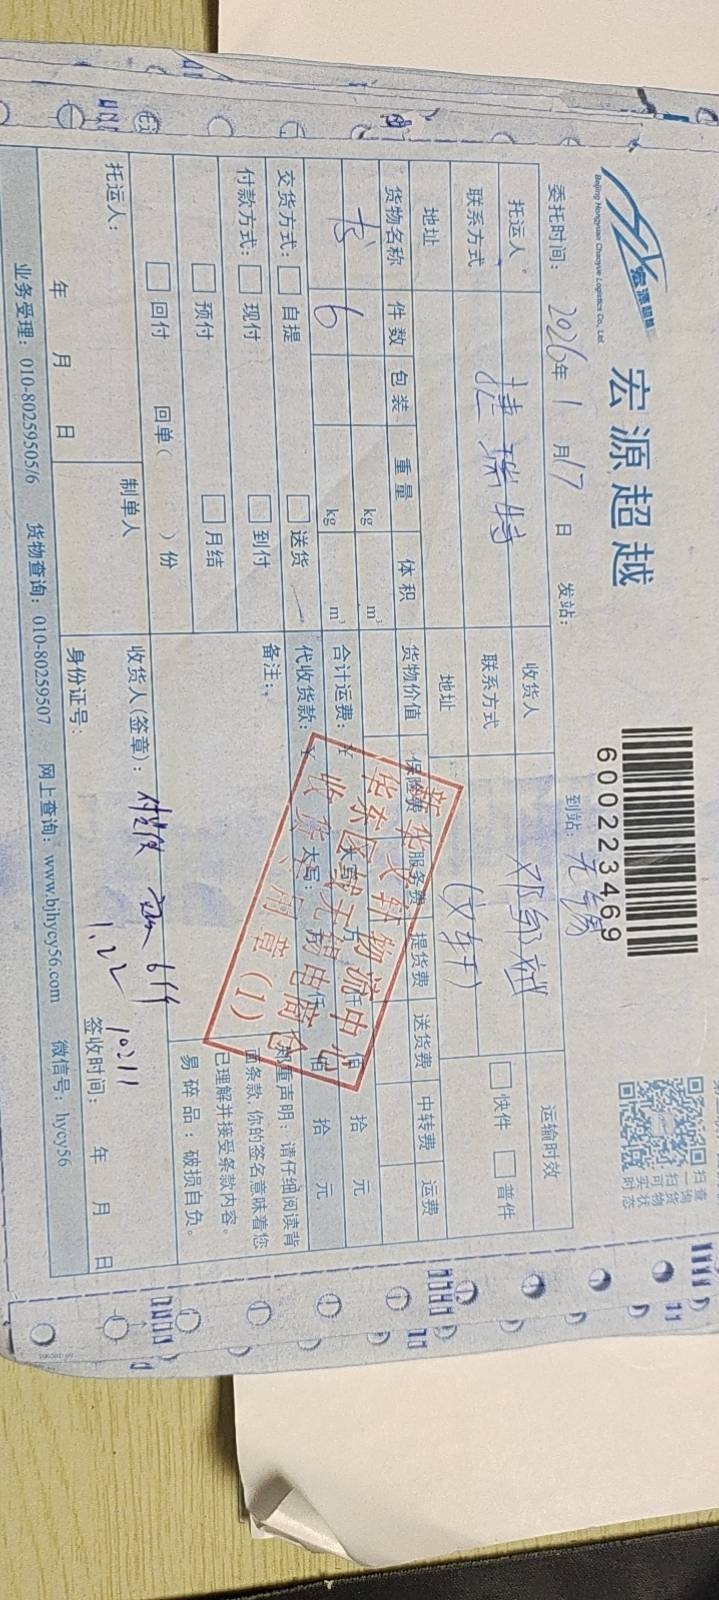 宏源超越
Beijing Hongyuan Chaoyue Logistics Co., Ltd
宏源超越
600223469
扫一扫
查询货物实时状态
委托时间: 2026年 1 月 17 日 发站: 到站: 无锡
托运人 收货人 运输时效
捷瑞特
联系方式 联系方式 快件 普件
地址 地址 (文轩)
货物名称 件数 包装 重量 体积 货物价值 保险费 服务费 提货费 送货费 中转费 运费
书 kg m³
6 kg m³
合计运费: ¥ 大写: 万 仟 佰 拾 元
代收货款: ¥ 大写: 万 仟 佰 拾 元
交货方式: 自提 送货
付款方式: 现付 到付
预付 月结
回付 回单( )份
备注:
郑重声明: 请仔细阅读背面条款, 你的签名意味着您已理解并接受条款内容。
易碎品: 破损自负。
新华文轩物流中心
华东区域无锡电商仓
收货专用章(1)
托运人:
年 月 日
制单人
收货人(签章):
1.22
身份证号:
签收时间: 年 月 日
业务受理: 010-80259505/6 货物查询: 010-80259507 网上查询: www.bjhycy56.com 微信号: hycy56